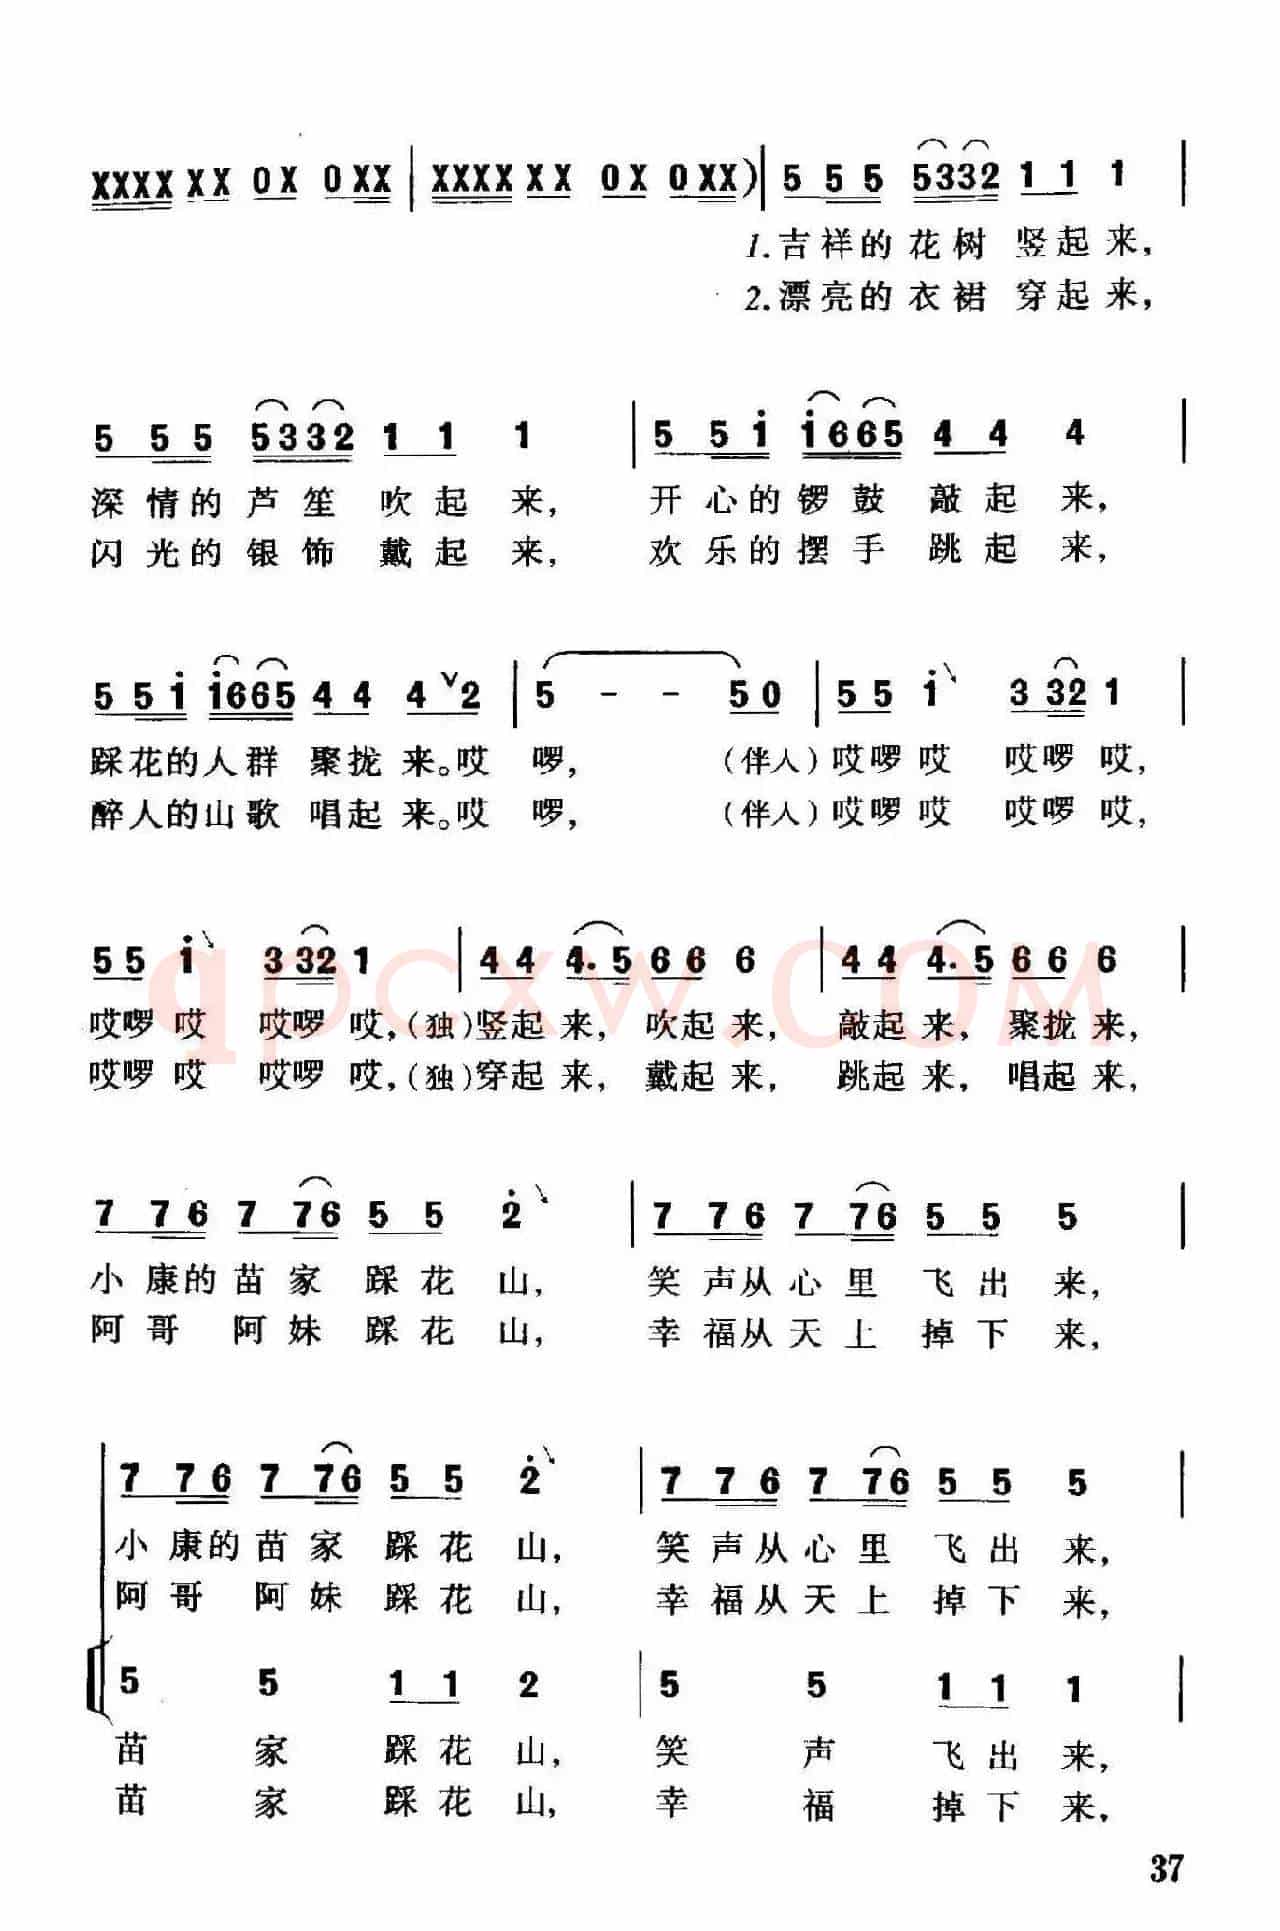 XXXX XX 0X 0XX | XXXX XX 0X 0XX) | 5 5 5 5332 1 1 1 |
1.吉祥的花树 竖起来,
2.漂亮的衣裙 穿起来,
5 5 5 5332 1 1 1 | 5 5 i i665 4 4 4 |
深情的芦笙 吹起来, 开心的锣鼓 敲起来,
闪光的银饰 戴起来, 欢乐的摆手 跳起来,
5 5 i i665 4 4 4 V 2 | 5 - - 5 0 | 5 5 i 3 32 1 |
踩花的人群 聚拢来。哎 啰, (伴人)哎啰哎 哎啰哎,
醉人的山歌 唱起来。哎 啰, (伴人)哎啰哎 哎啰哎,
5 5 i 3 32 1 | 4 4 4. 5 6 6 6 | 4 4 4. 5 6 6 6
哎啰哎 哎啰哎,(独)竖起来, 吹起来, 敲起来, 聚拢来,
哎啰哎 哎啰哎,(独)穿起来, 戴起来, 跳起来, 唱起来,
qpcxw.com
7 7 6 7 76 5 5 2̇ | 7 7 6 7 76 5 5 5 |
小康的苗家 踩花山, 笑声从心里 飞出来,
阿哥 阿妹 踩花山, 幸福从天上 掉下来,
7 7 6 7 76 5 5 2̇ | 7 7 6 7 76 5 5 5 |
小康的苗家 踩花山, 笑声从心里 飞出来,
阿哥 阿妹 踩花山, 幸福从天上 掉下来,
5 5 1 1 2 | 5 5 1 1 1 |
苗 家 踩花山, 笑 声 飞出来,
苗 家 踩花山, 幸 福 掉下来,
37